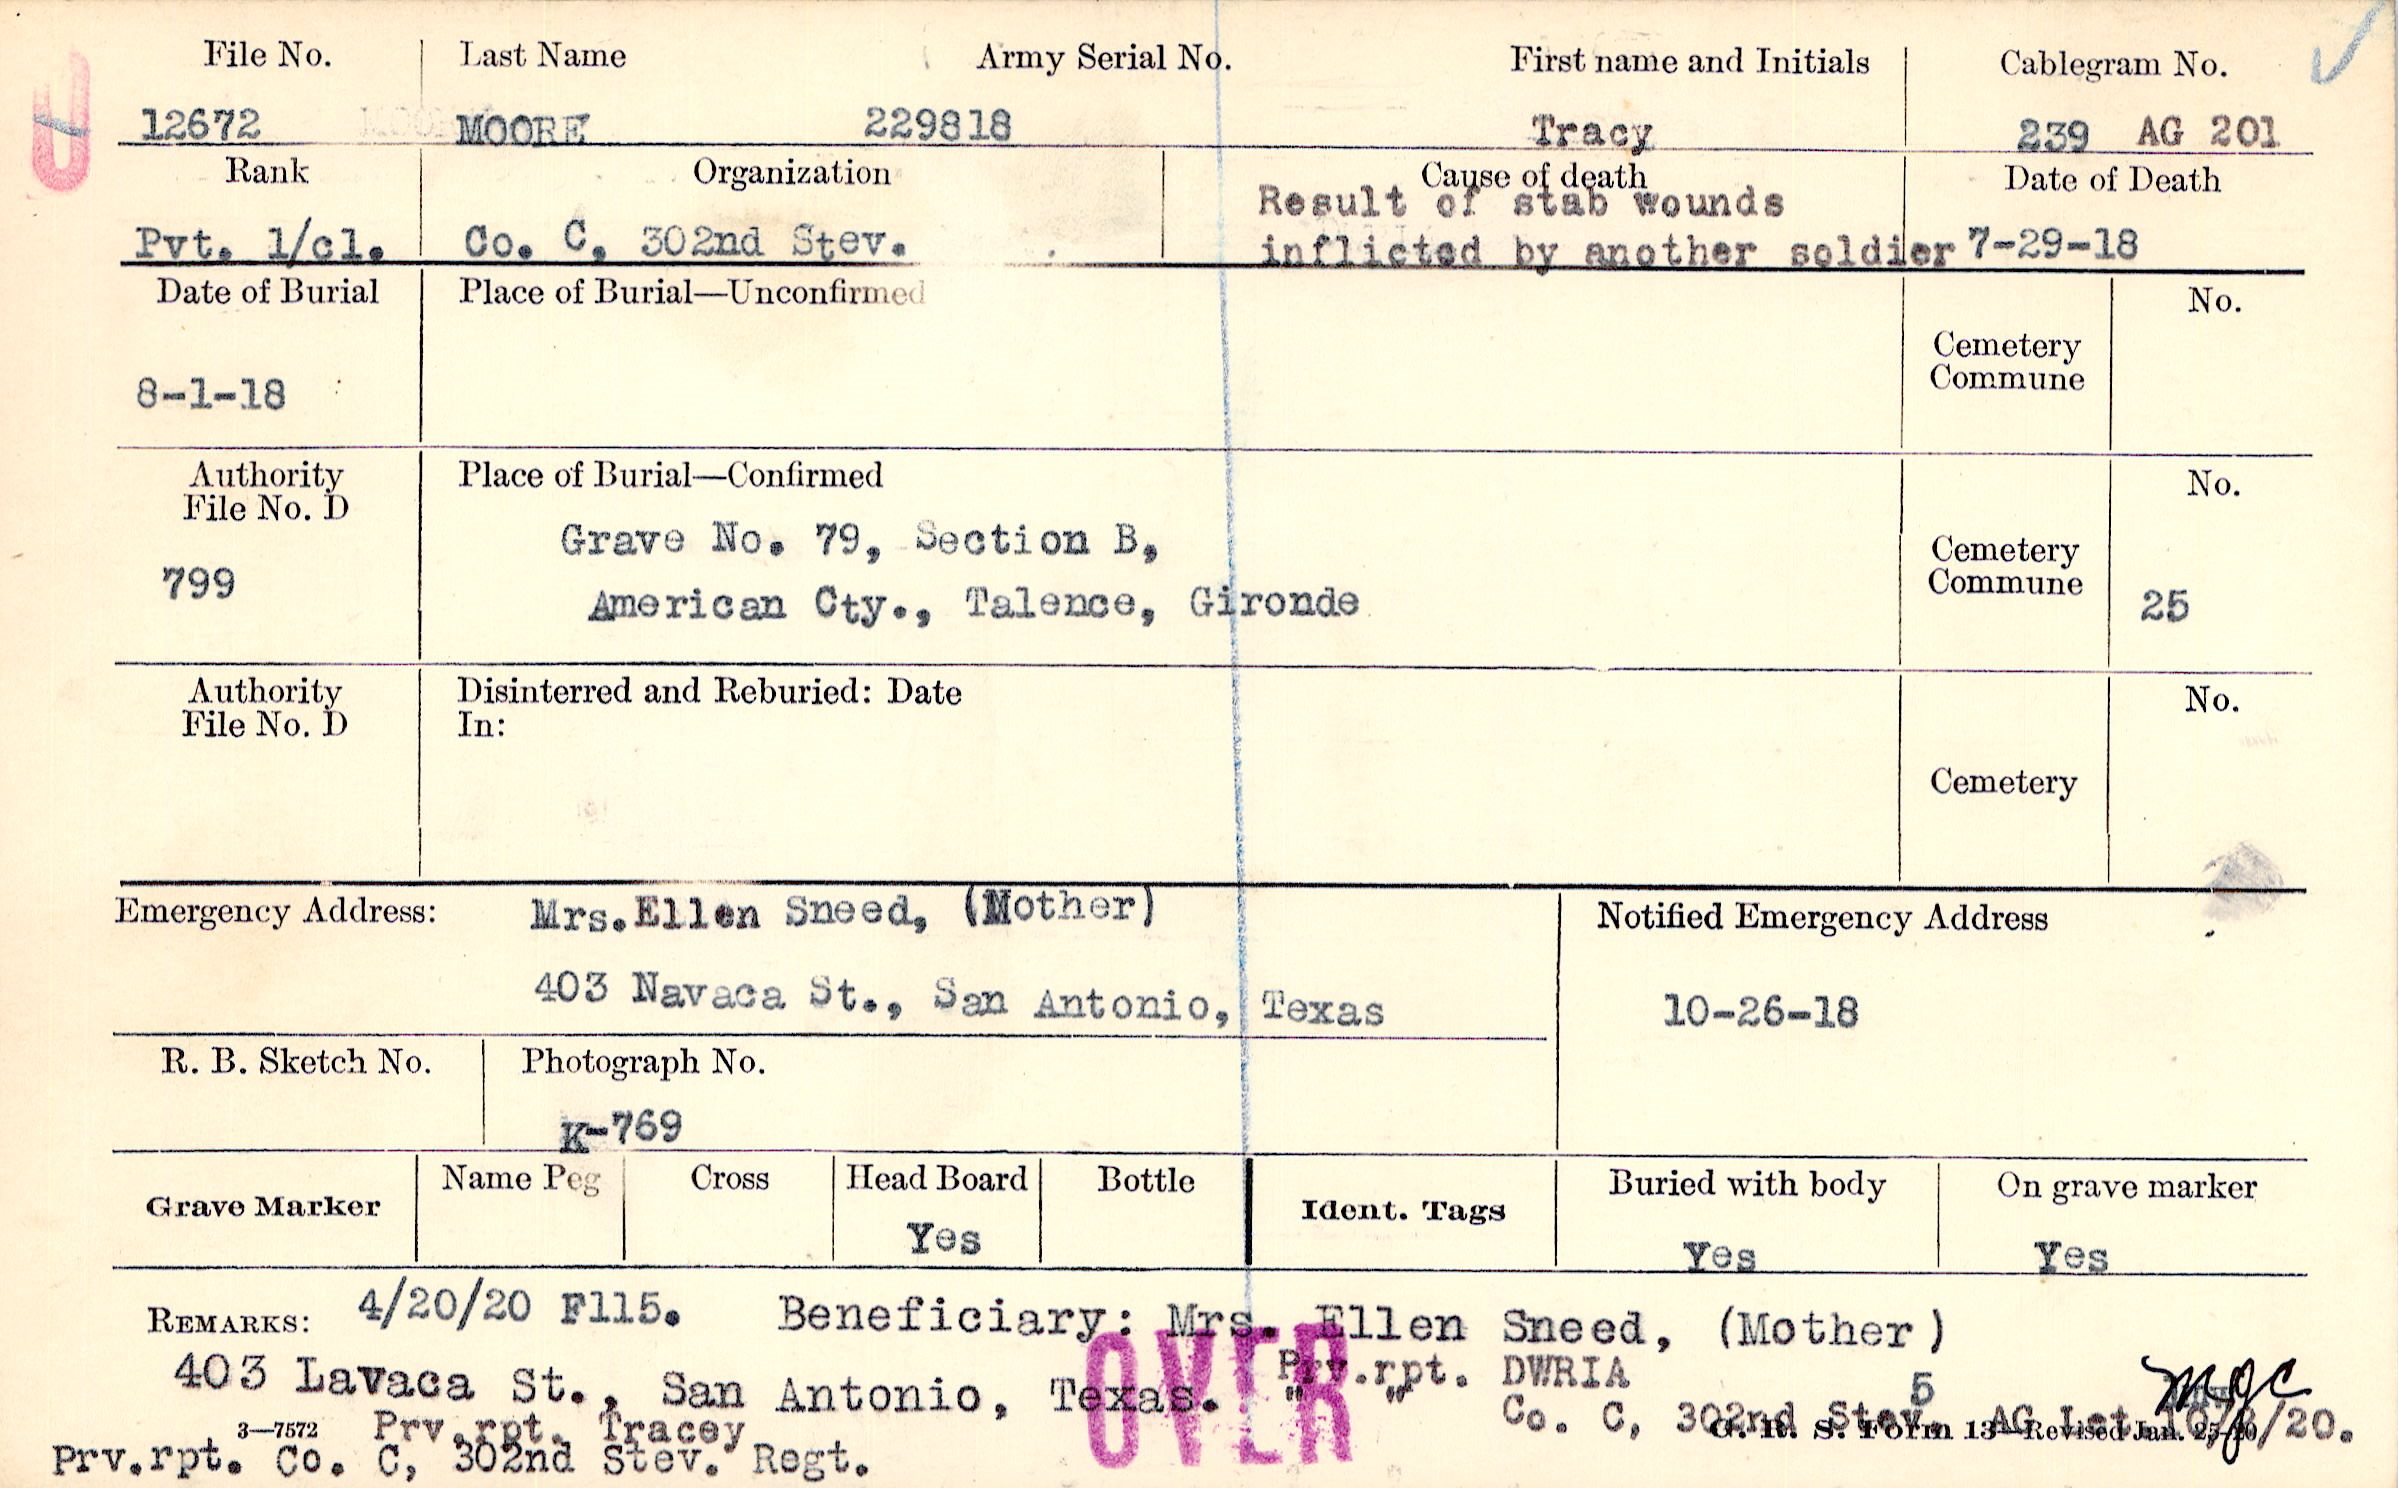 File No. Last Name Army Serial No. First name and Initials Cablegram No.
12672 MOORE 229818 Tracy 239 AG 201
Rank Organization Cause of death Date of Death
Result of stab wounds
Pvt. 1/cl. Co. C, 302nd Stev. inflicted by another soldier 7-29-18
Date of Burial Place of Burial—Unconfirmed No.
Cemetery
Commune
8-1-18
Authority Place of Burial—Confirmed No.
File No. D
Grave No. 79, Section B,
Cemetery
799 Commune
American Cty., Talence, Gironde 25
Authority Disinterred and Reburied: Date No.
File No. D In:
Cemetery
Emergency Address: Mrs. Ellen Sneed, (Mother) Notified Emergency Address
403 Navaca St., San Antonio, Texas 10-26-18
R. B. Sketch No. Photograph No.
K-769
Grave Marker Name Peg Cross Head Board Bottle Ident. Tags Buried with body On grave marker
Yes Yes Yes
REMARKS: 4/20/20 F115. Beneficiary: Mrs. Ellen Sneed, (Mother)
403 Lavaca St., San Antonio, Texas. Prv.rpt. DWRIA
" " Co. C, 302nd Stev. 5 AG Let. /20. mgc
3—7572 Prv.rpt. Tracey G. R. S. Form 13—Revised Jan.
Prv.rpt. Co. C, 302nd Stev. Regt.
OVER